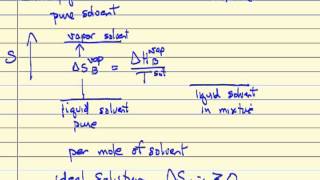 pure solvent
S
vapor solvent
ΔS_B^vap = ΔH_B^vap / T^sat
liquid solvent
pure
liquid solvent
in mixture
per mole of solvent
ideal solution